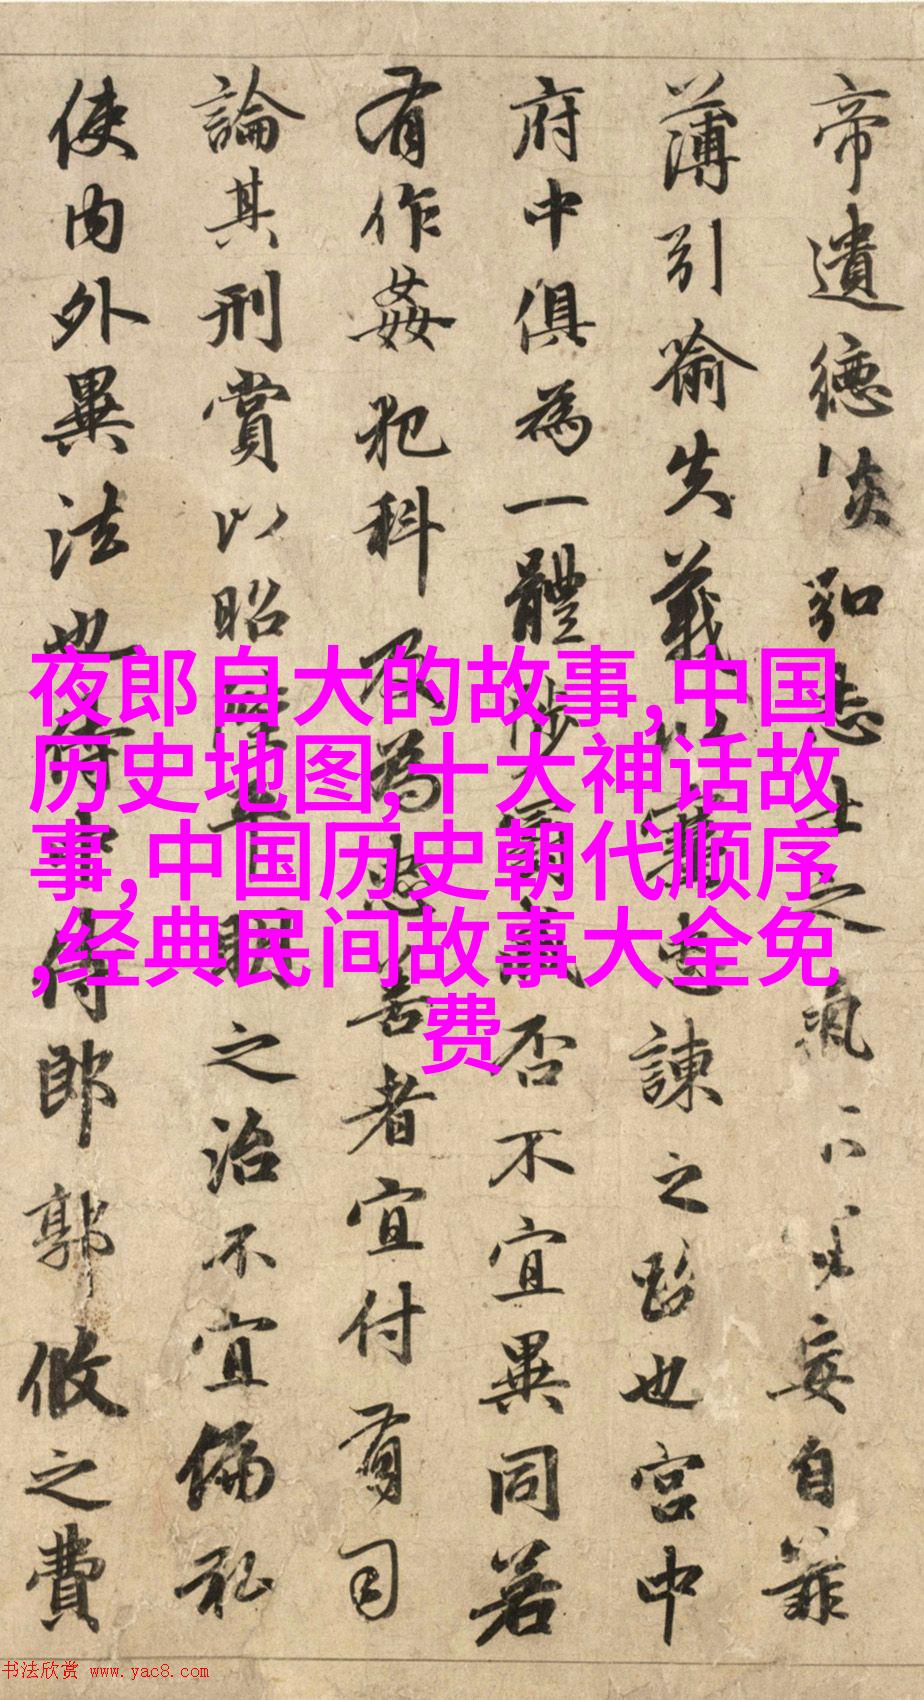 帝遺德恢弘志士之氣不宜妄自菲
薄引喻失義以塞忠諫之路也宮中
府中俱為一體陟罰臧否不宜異同若
有作姦犯科及為忠善者宜付有司
論其刑賞以昭陛下平明之治不宜偏私
使內外異法也侍中侍郎郭攸之費
夜郎自大的故事,中国
历史地图,十大神话故
事,中国历史朝代顺序
,经典民间故事大全免
费
书法欣赏 www.yac8.com